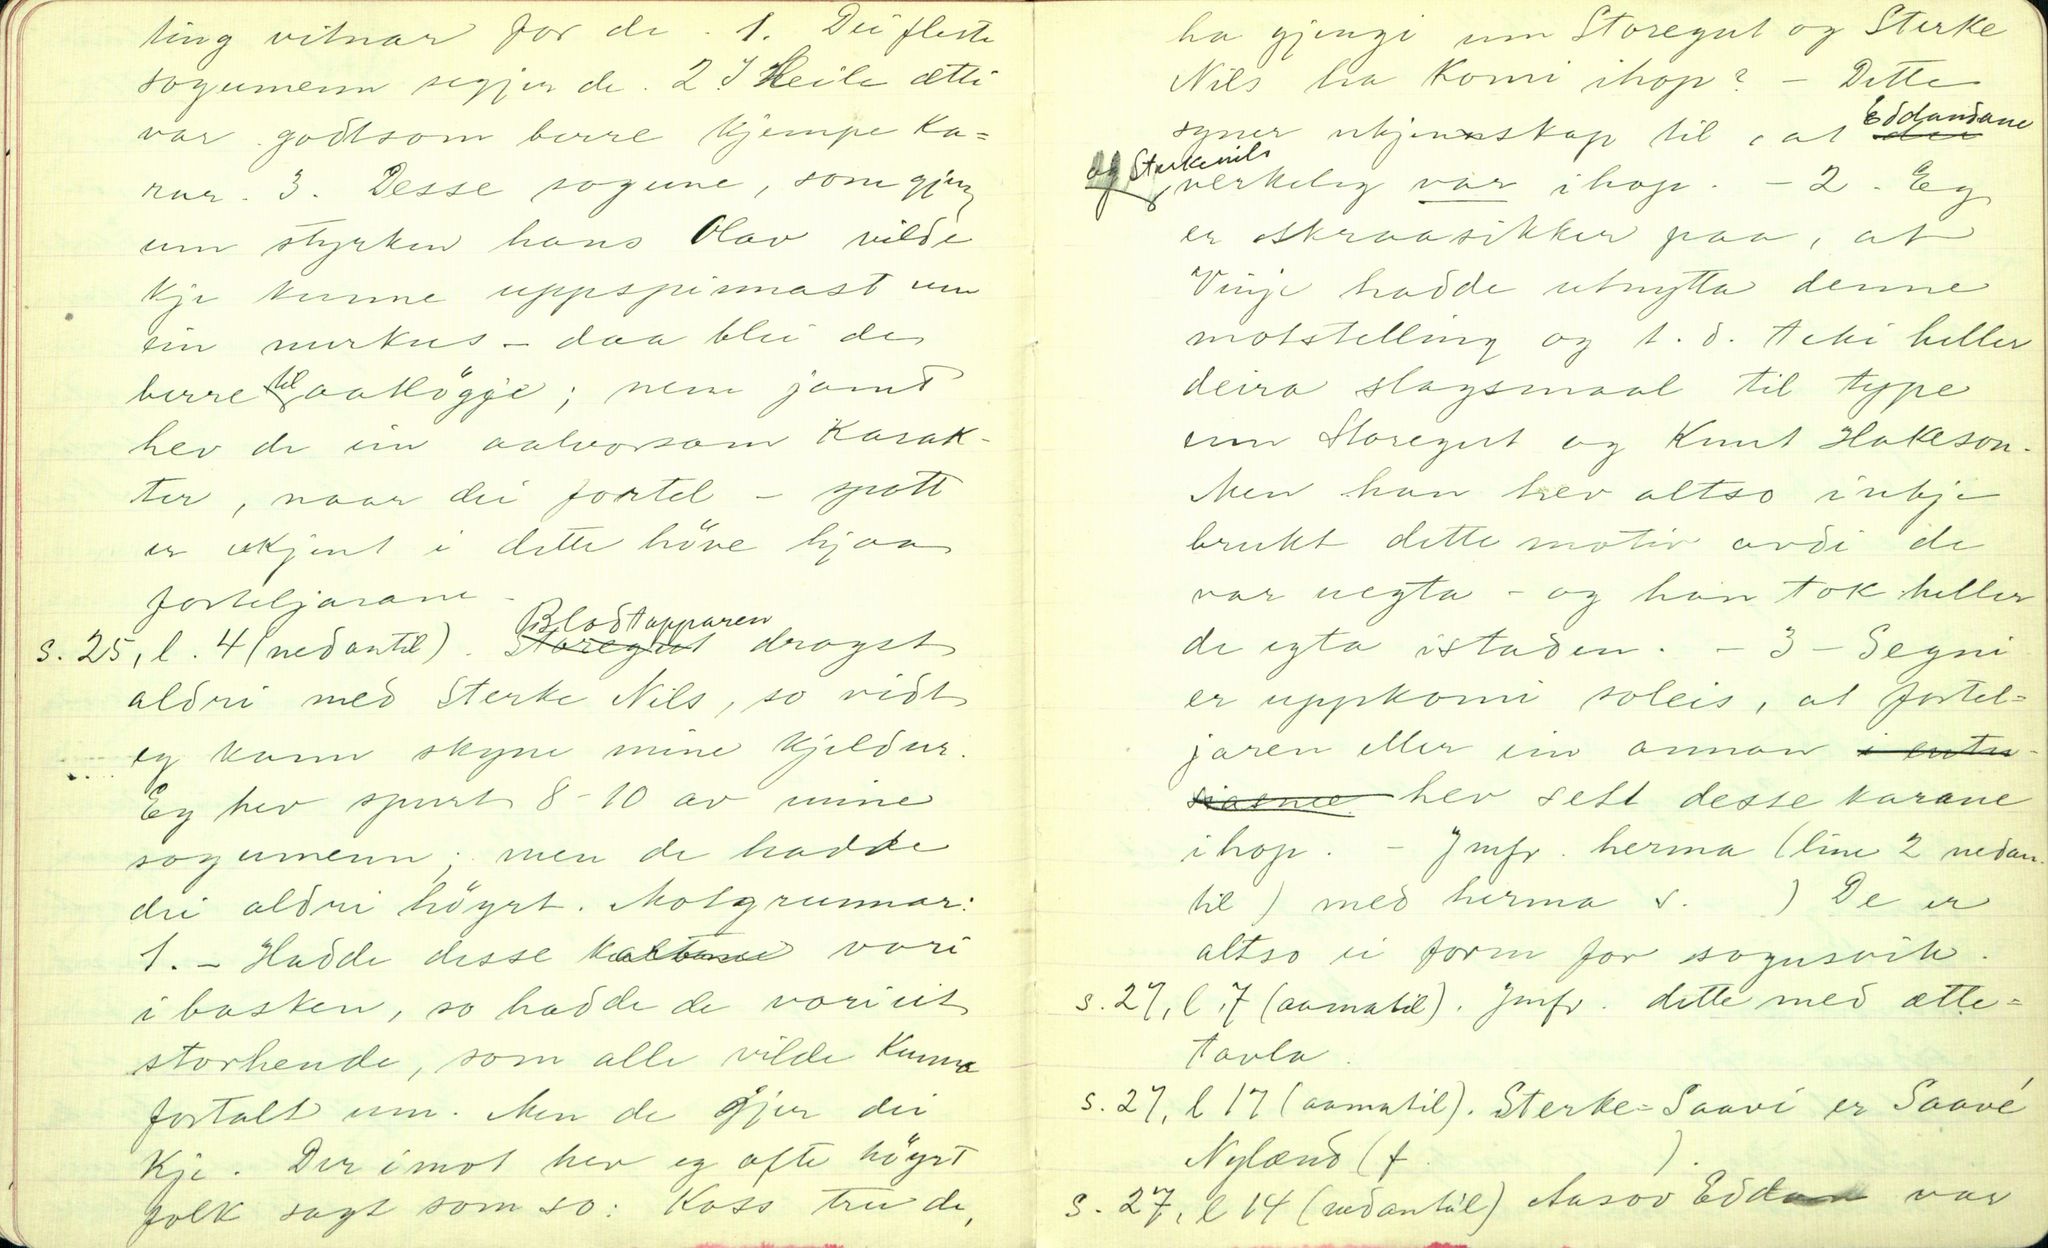 ting vitnar for de. 1. Dei fleste
sogumenn segjer de. 2. I Heile ætti
var godtsom berre kjempe ka=
rar. 3. Desse sogune, som gjeng
um styrken hans Olav vilde
kje kunne uppspinnast um
ein merkus - daa blei de
berre til aatlögje; nem jamt
hev de ein aalvorsam karak-
ter, naar dei fortel - spott
er ukjent i dette höve hjaa
forteljarane -
s. 25, l. 4 (nedantil). Storegut Blodtapparen drogst
aldri med Sterke Nils, so vidt
eg kann skyne mine kjeldur.
Eg hev spurt 8-10 av mine
sogumenn; men de hadde
dei aldri höyrt. Motgrunnar:
1. - Hadde desse vori
i basken, so hadde de vori eit
storhende, som alle vilde kunna
fortalt um. Men de gjer dei
kje. Derimot hev eg ofte höyrt
folk sagt som so: Koss tru de,
ha gjengi um Storegut og Sterke
Nils ha komi ihop? - Dette
syner ukjennskap til, at dei Eddandane
og Sterkenils verkeleg var ihop. - 2. Eg
er skraasikker paa, at
Vinje hadde utnytta denne
motstelling og t. d. teki heller
deira slagsmaal til type
enn Storegut og Knut Hakeson.
Men han hev altso inkje
brukt dette motiv avdi de
var uegta - og han tok heller
de egta istaden. - 3 - Segni
er uppkomi soleis, at fortel=
jaren eller ein annan i entu-
siasme hev sett desse karane
ihop. - Jmfr. herma (line 2 nedan-
til) med herma s. ) De er
altso ei form for sogusvik.
s. 27, l. 7 (aamatil). Jmfr. dette med ætte=
tavla.
s. 27, l 17 (aamatil). Sterke=Saavi er Saavé
Nylænd (f. ).
s. 27, l 14 (nedantil) Aasov Eddan var